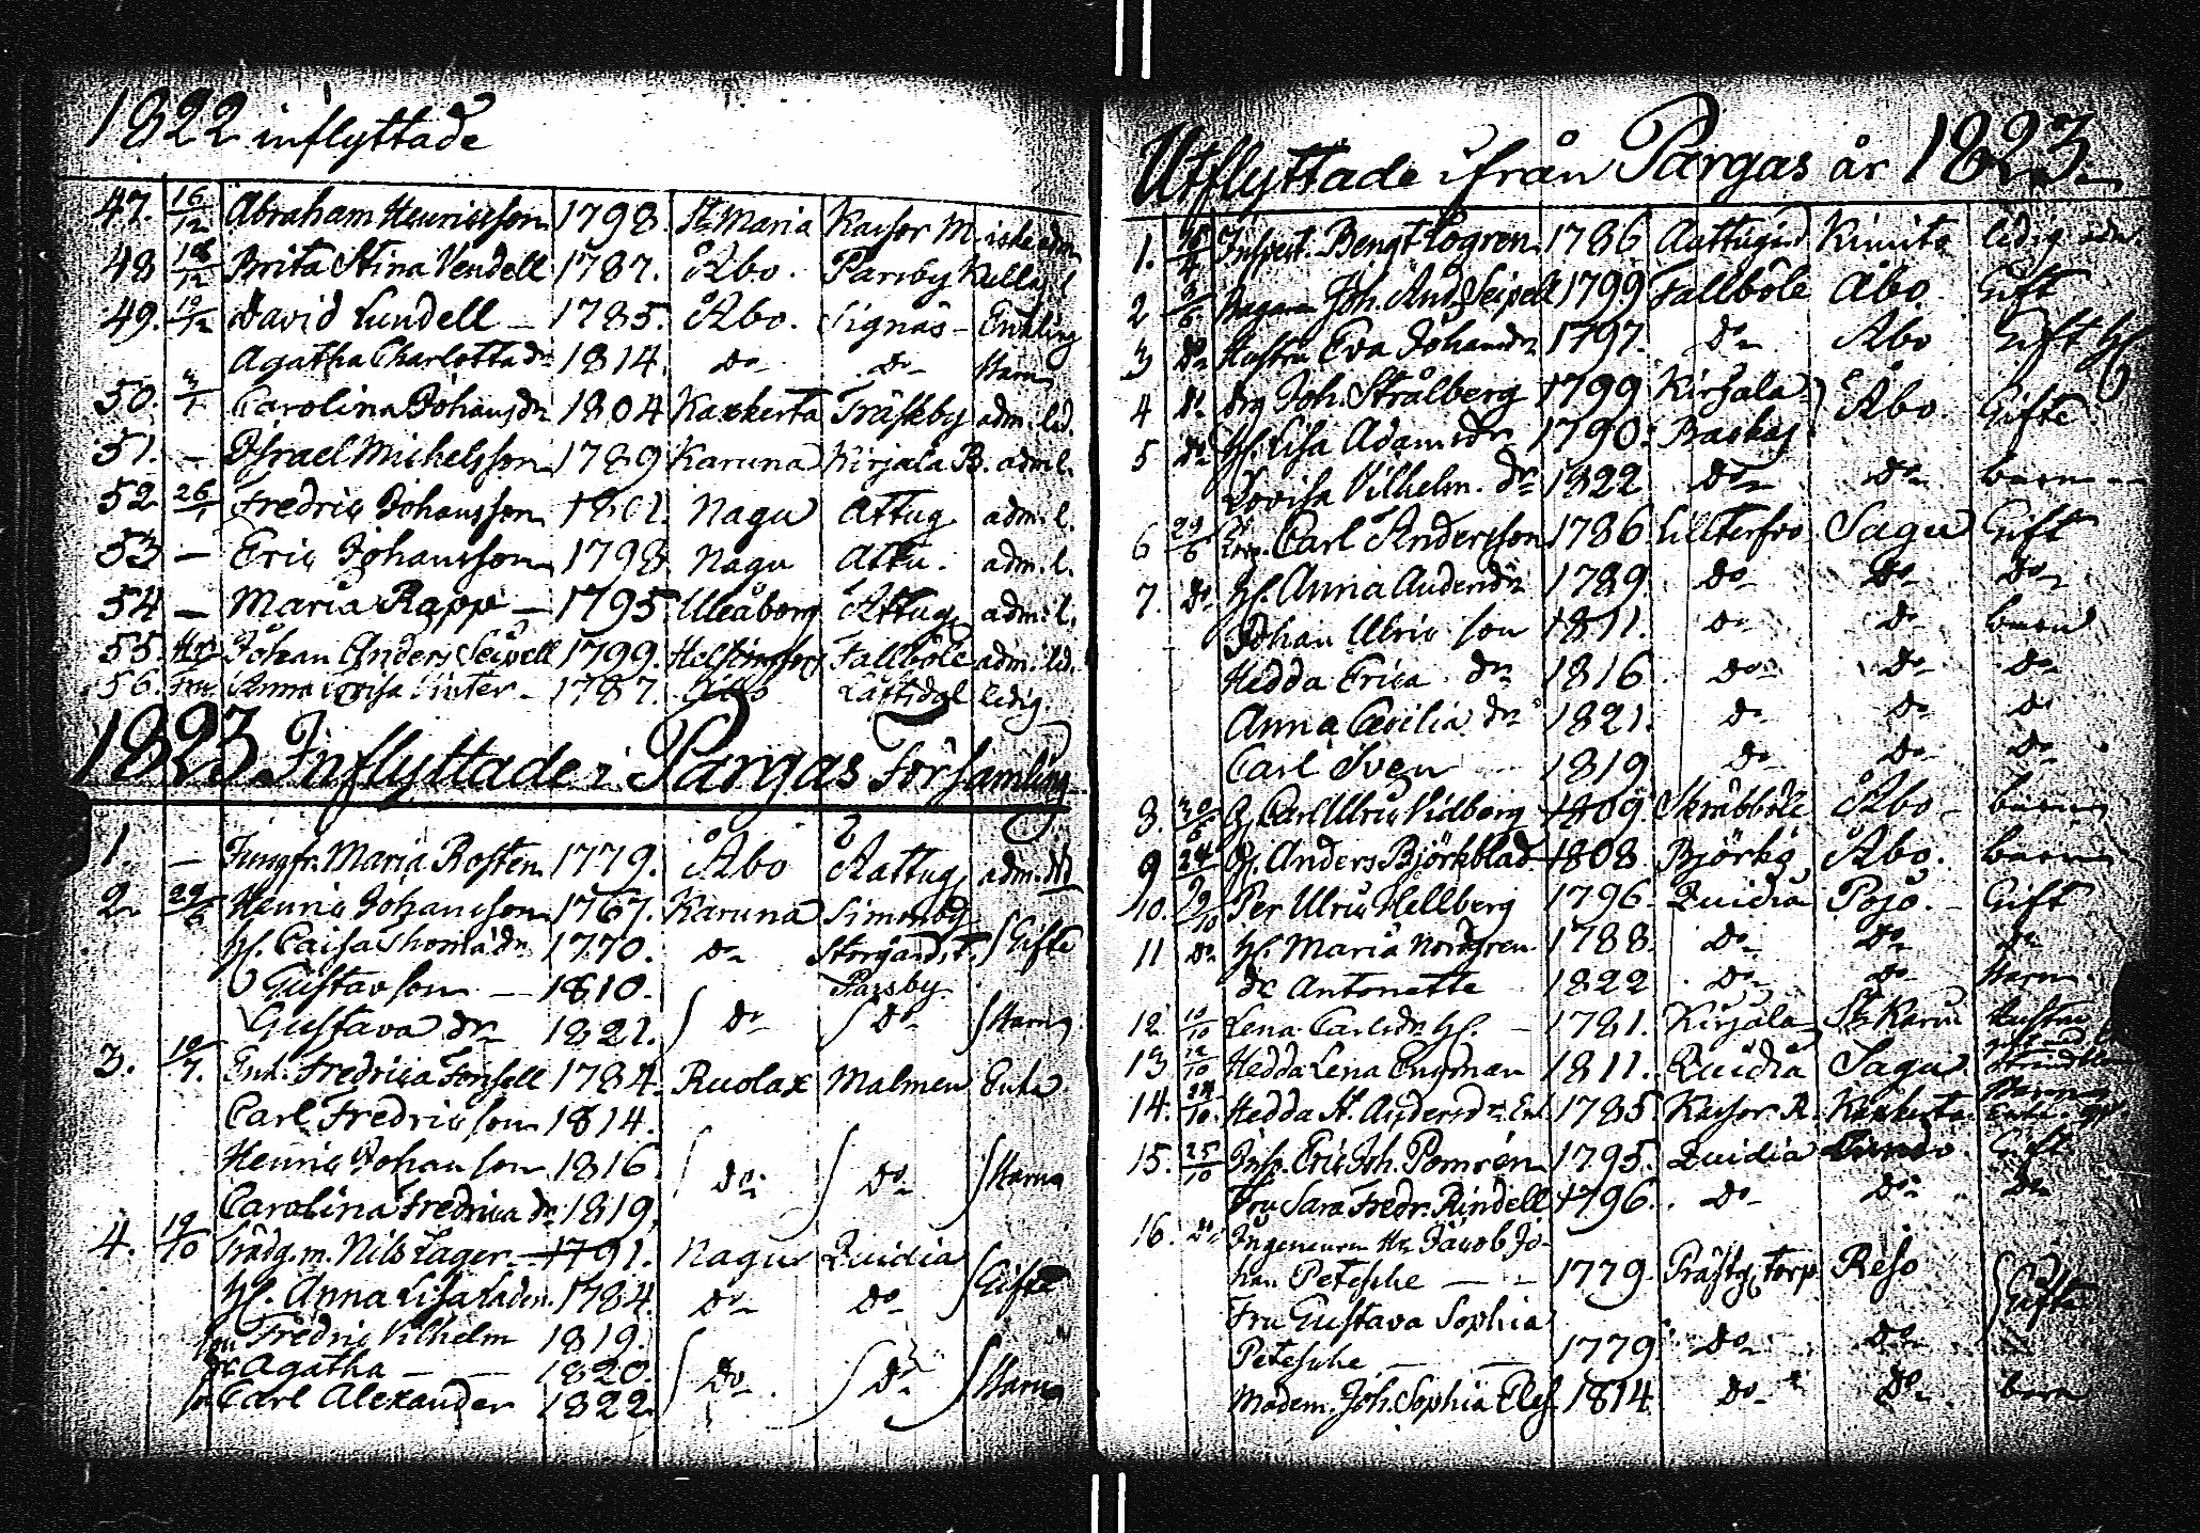 1822 inflyttade
47. 16/12 Abraham Henricsson 1798. St Maria Kaysor M.
48 18/12 Brita Stina Vendell 1787. Åbo. Parsby Kulla
49. 19/12 David Lundell — 1785. Åbo. Signäs — Enkling
Agatha Charlotta dr 1814. do do Barn
50. 3/1 Carolina Johansdr 1804 Kaxkerta Träskby adm. led.
51. — Israel Michelsson 1789 Karuna Kirjala B. adm. l.
52 26/1 Fredric Johansson 1801. Nagu Attug adm. l.
53 — Eric Johansson 1798 Nagu Attu. adm. l.
54 — Maria Rapp — 1795 Uleåborg Attug adm. l.
55. Hr Johan Anders Seipell 1799. Helsingfors Fallböle adm. led.
56. Fru Anna Lovisa Vinter — 1787. Åbo Läftsdal ledig.
1823 Inflyttade i Pargas Församling
1. — Jungfr. Maria Rosten 1779. Åbo Aattug adm.
2. 29/6 Henric Johansson 1767. Karuna Simonby
H. Caisa Thomädr 1770. do Storgård, T. Gifte
Gustav son — 1810. Parsby
Gustava dr 1821. do do Barn
3. 10/7. Enk. Fredrica Fonsell 1784. Ruolax Malmen Enka.
Carl Fredric son 1814.
Henric Johan son 1816 do do Barna
Carolina Fredrica dr 1819.
4. 19/10 Trädg.m. Nils Lager — 1791. Nagu Quidia
H. Anna Lisa Laden. 1784. do do Gifte
son Fredric Vilhelm 1819.
dr Agatha — — 1820. do do Barna
sn Carl Alexander 1822.
Utflyttade ifrån Pargas år 1823.
1. Inspect. Bengt Logren 1786 Aattugård Kimito ledig
2 3/6 Joh. And. Seipell 1799 Fallböle Åbo Gift
3 do Hustru Eva Johansdr 1797. do Åbo Gift H
4 do drg Joh. Strålberg 1799 Kirjala
5 do H. Lisa Adamsdr 1790. Backas Åbo. Gifte
Lovisa Vilhelm. dr 1822 do do barn —
6 29/6 Carl Andersson 1786 Lillterfvo Sagu Gift
7. do H. Anna Andersdr 1789. do do do
Johan Ulric son 1811. do do barn
Hedda Erica dr 1816 do do do
Anna Cecilia dr 1821. do do do
Carl Sven — 1819 do do do
8. 30/6 G. Carl Ulric Vidberg 1809. Skräbböle Åbo — barn
9 24/ G. Anders Björkblad 1808 Björkö Åbo. barn
10. 9/10 Per Ulric Hellberg 1796. Quidia Pojo. — Gift
11 do H. Maria Nordgren 1788. do do do
dr Antonette 1822 do do barn
12. 10/10 Lena Carlsdr H. — 1781. Kirjala St Karin Hustru
13 12/10 Hedda Lena Engman 1811. Quidia Sagu.
14. 24/10. Hedda St. Andersdr Enk. 1785. Kaysor R. Kaxkerta
15. 25/10 Insp. Eric Joh. Pomrén 1795. Quidia Lundo Gift
Fru Sara Fredr. Rindell 1796. do do do
16. do Ingeneuren Hr Jacob Jo-
han Petesche — — 1779. Prästg. torp Reso
Fru Gustava Sophia Gifta
Petesche — — 1779. do do
Madem. Joh. Sophia Eles. 1814. do do barn